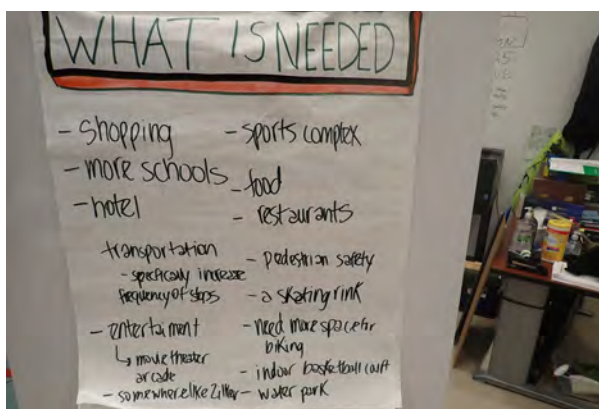 WHAT IS NEEDED
- Shopping
- more schools
- hotel
transportation
- specifically increase
frequency of stops
- entertaiment
↳ movie theater
arcade
- somewhere like Zilker
- sports complex
- food
- restaurants
- pedestrian safety
- a skating rink
- need more space for
biking
- indoor basketball court
- water park